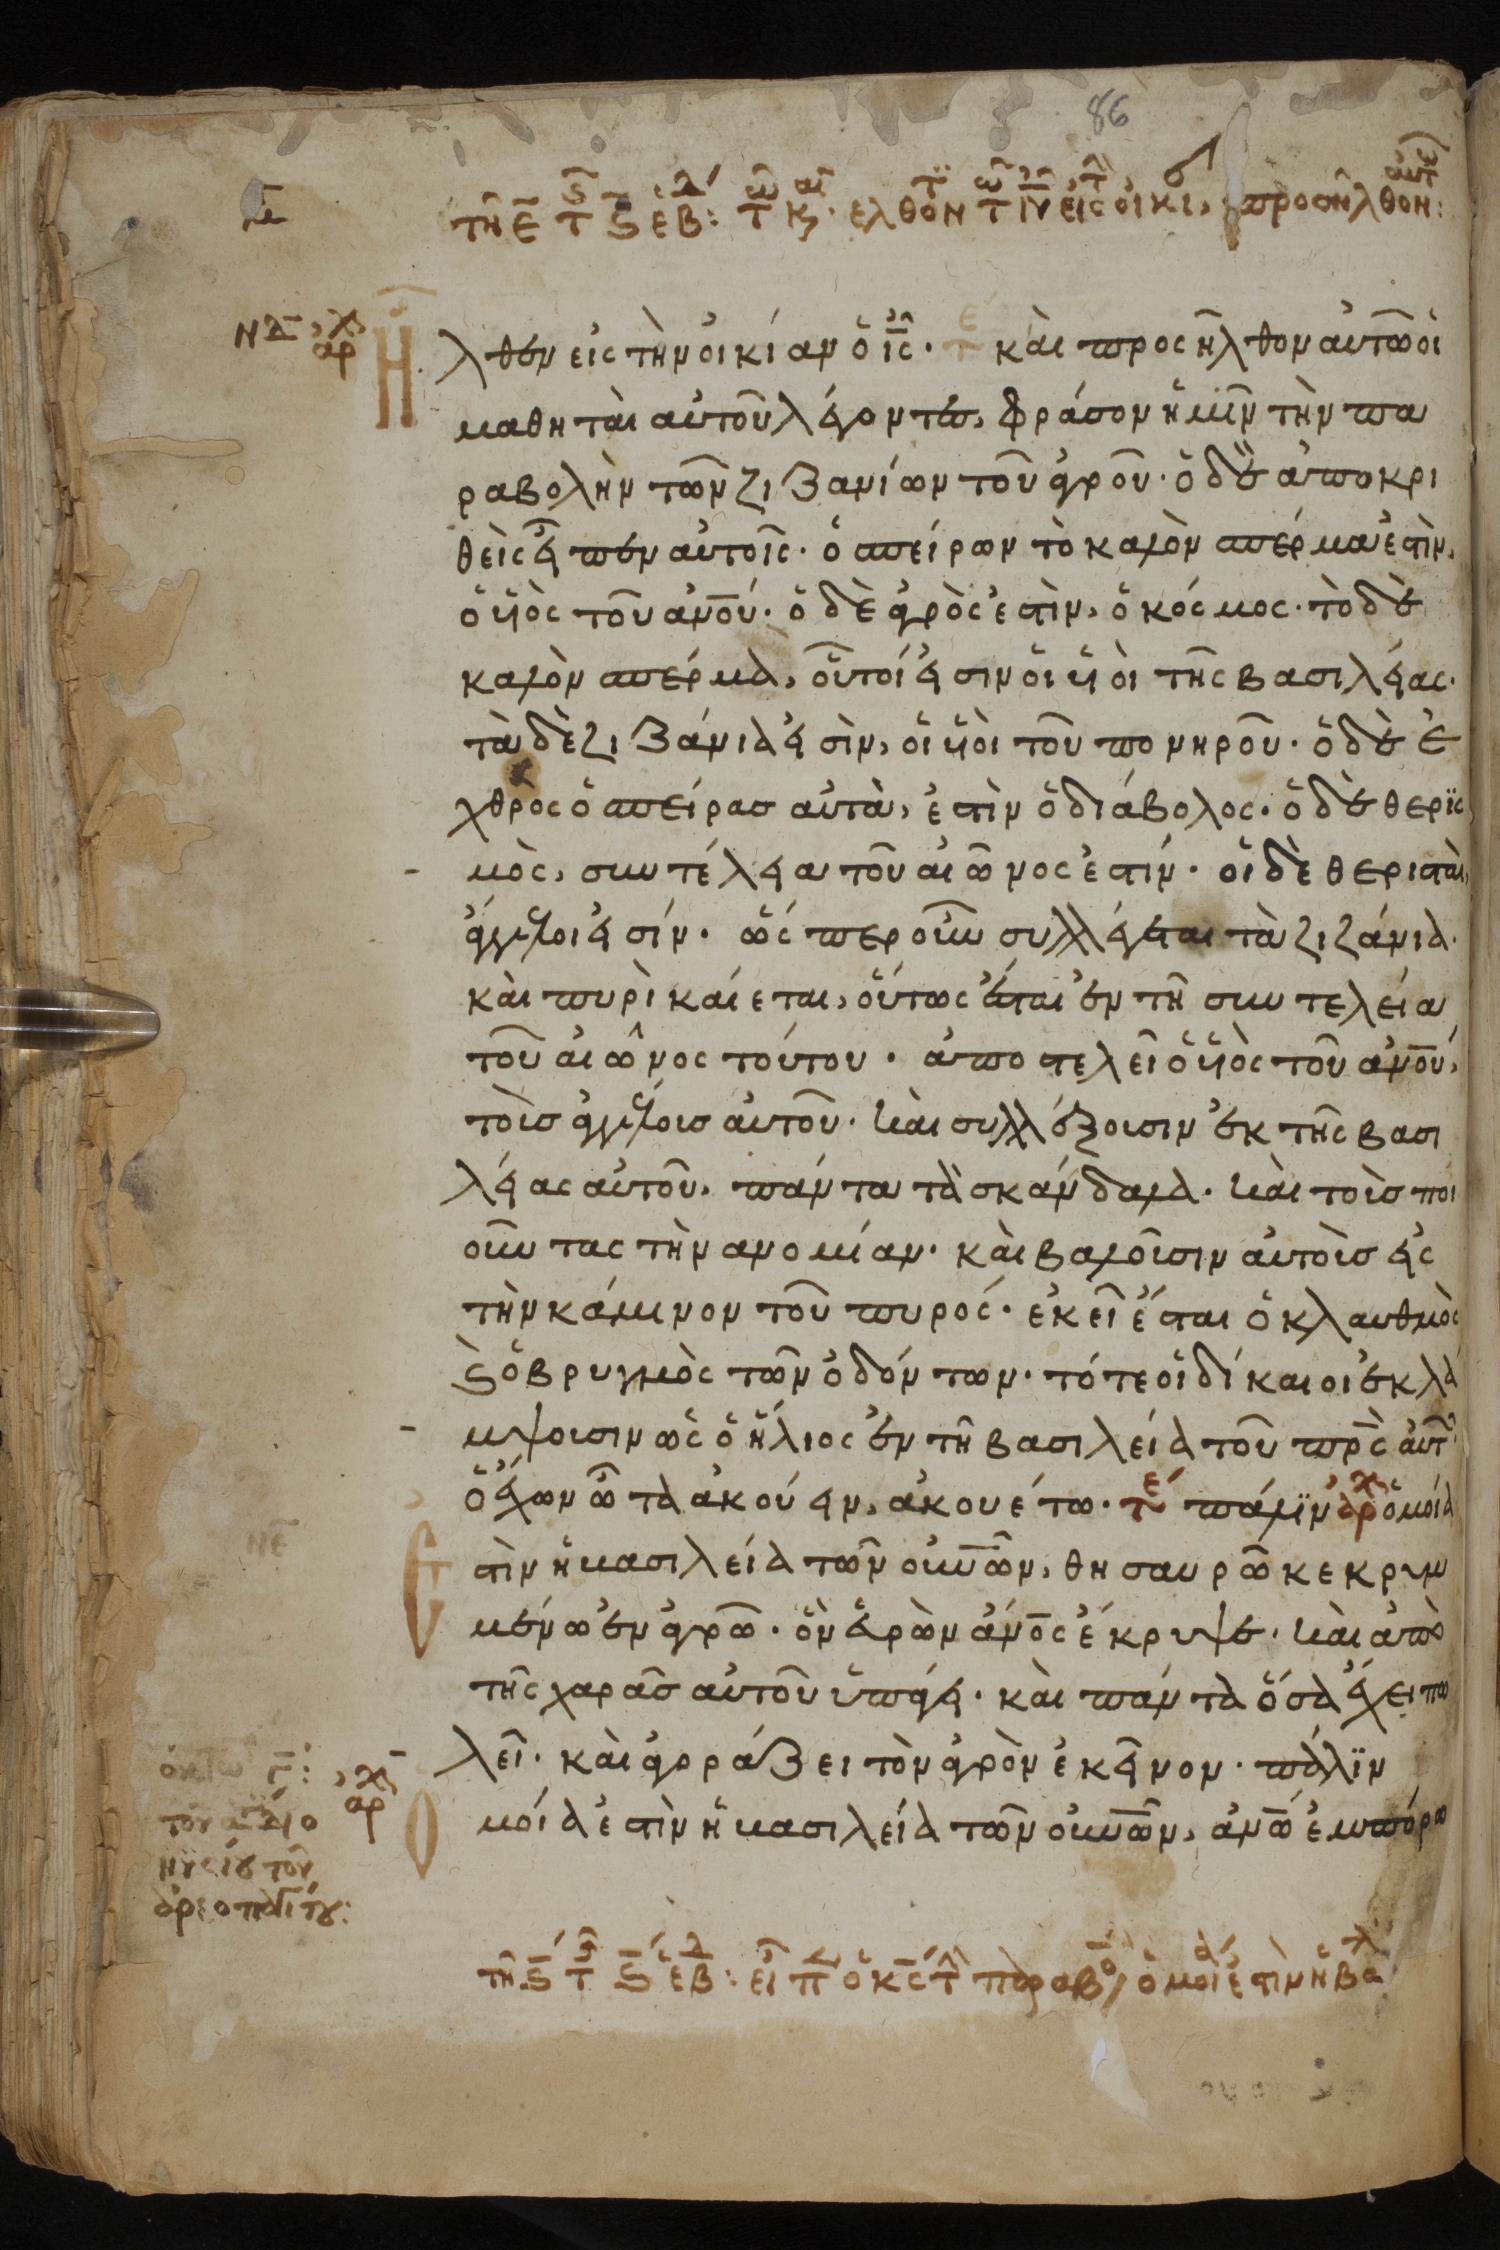 86
τῆ ε̅ τ ϛ ἑβ: τ κ· ελθὸν τ ιν εἰς οἰκι, προσῆλθον:
νδ̅ ἀρχ
Ηλθεν εἰς τὴν οἰκίαν ὁ ι̅ς̅· καὶ προσῆλθον αὐτῶ οἱ
μαθηταὶ αὐτοῦ λέγοντες, φράσον ἡμῖν τὴν πα
ραβολὴν τῶν ζιζανίων τοῦ ἀγροῦ· ὁ δὲ ἀποκρι
θεὶς εἶπεν αὐτοῖς· ὁ σπείρων τὸ καλὸν σπέρμα ἐστὶν,
ὁ υἱὸς τοῦ α̅ν̅ο̅υ̅· ὁ δὲ ἀγρὸς ἐστὶν, ὁ κόσμος· τὸ δὲ
καλὸν σπέρμα, οὗτοί εἰσιν οἱ υἱοὶ τῆς βασιλείας·
τὰ δὲ ζιζάνια εἰσὶν, οἱ υἱοὶ τοῦ πονηροῦ· ὁ δὲ ἐ
χθρὸς ὁ σπείρας αὐτὰ, ἐστὶν ὁ διάβολος· ὁ δὲ θερϊς
μὸς, συντέλεια τοῦ αἰῶνος ἐστίν· οἱ δὲ θερισταὶ,
ἄγγελοι εἰσίν· ὥσπερ οὖν συλλέγεται τὰ ζιζάνια·
καὶ πυρὶ καίεται, οὕτως ἔσται ἐν τῆ συντελεία
τοῦ αἰῶνος τούτου· ἀποστελεῖ ὁ υἱὸς τοῦ α̅ν̅ο̅υ̅,
τοὺσ ἀγγέλουσ αὐτοῦ· καὶ συλλέξουσιν ἐκ τῆς βασι
λείας αὐτοῦ, πάντα τὰ σκάνδαλα· καὶ τοὺσ ποι
οῦντας τὴν ανομίαν· καὶ βαλοῦσιν αὐτοὺσ εἰς
τὴν κάμινον τοῦ πυρός· ἐκεῖ ἔσται ὁ κλαυθμὸς
ϗ ὁ βρυγμὸς τῶν ὀδόντων· τότε οἱ δίκαιοι ἐκλά
μψουσιν ὡς ὁ ἥλιος ἐν τῆ βασιλεία τοῦ π̅ρ̅ς̅ αὐτ
ὁ ἔχων ὦτα ἀκούειν, ἀκουέτω· τε πάλϊν ἀρχ ὁμοία
ν̅ε̅
εστὶν ἡ βασιλεία τῶν οὐ̅ν̅ῶ̅ν̅, θησαυρῶ κεκρυμ
μένω ἐν ἀγρῶ· ὃν εὑρὼν α̅ν̅ο̅ς̅ ἔκρυψε· καὶ ἀπὸ
τῆς χαρᾶσ αὐτοῦ ὑπάγει· καὶ πάντα ὅσα ἔχει πω
λεῖ· καὶ ἀγοράζει τὸν ἀγρὸν ἐκεῖνον· πάλϊν
ομοία ἐστὶν ἡ βασιλεία τῶν οὐ̅ν̅ῶ̅ν̅, α̅ν̅ω̅ ἐμπόρω
ἀρχ
τοῦ ἁγίου διο
νυσίου τοῦ
ἀρεοπαγίτου:
τῆ ϛ̅ τ ϛ̅ ἑβ: εἶπ ὁ κ̅ς̅ τ παραβο, ὁμοί ἐστὶν ἡ βα